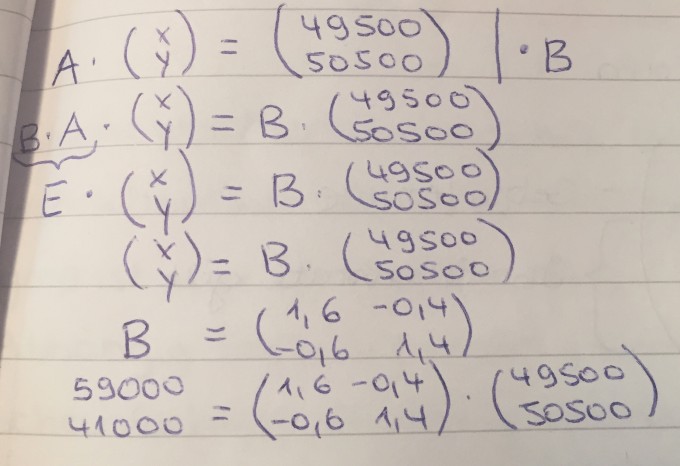 A · (x y) = (49500 50500) | · B
B · A · (x y) = B · (49500 50500)
E · (x y) = B · (49500 50500)
(x y) = B · (49500 50500)
B = (1,6 -0,4 -0,6 1,4)
59000 41000 = (1,6 -0,4 -0,6 1,4) · (49500 50500)